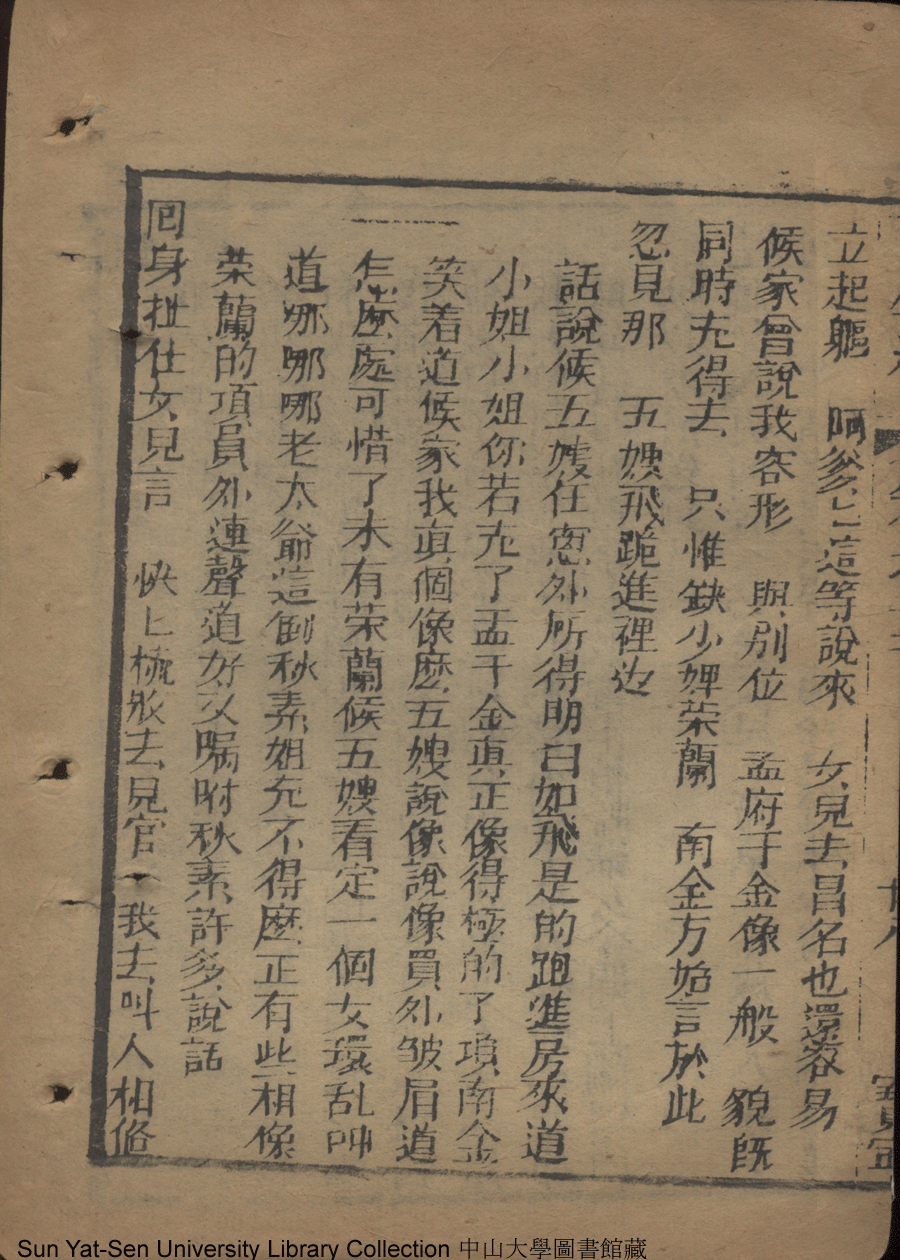 立起軀　阿爹〻這等說來　女兒去昌名也還容易
候家曾說我容形　與別位　孟府千金像一般　貌既
同時充得去　只惟缺少婢荣蘭　南金方始言於此
忽見那　五嫂飛跪進裡边
話說候五嫂在窓外所得明白如飛是的跑進房來道
小姐小姐你若充了孟千金真正像得極的了項南金
笑着道候家我真個像麽五嫂說像說像員外皱眉道
怎麽處可惜了未有荣蘭候五嫂看定一個女環乱呌
道哪哪哪老太爺這個秋素姐充不得麽正有些相像
荣蘭的項員外連聲道好又嘱咐秋素許多說話
囘身扯住女兒言　快〻梳粧去見官　我去叫人相俻
Sun Yat-Sen University Library Collection 中山大學圖書館藏